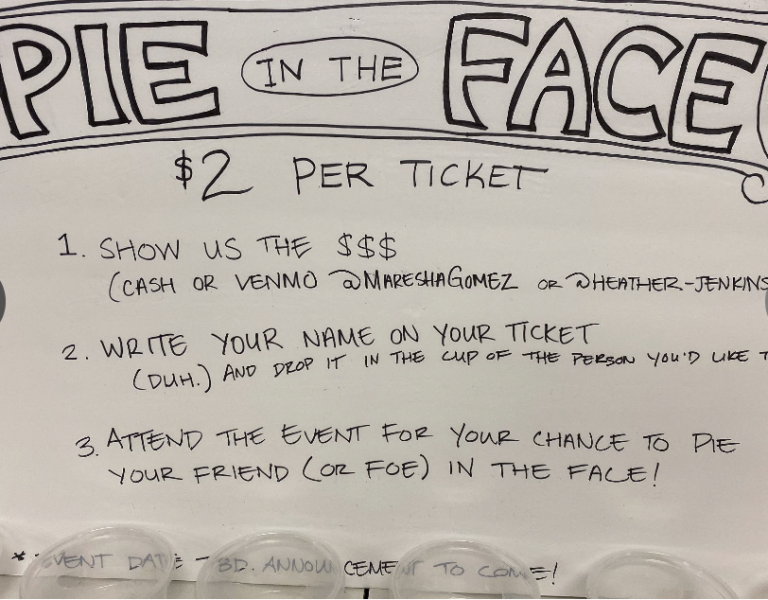 PIE IN THE FACE
$2 PER TICKET
1. SHOW US THE $$$
(CASH OR VENMO @MARESHAGOMEZ OR @HEATHER-JENKINS
2. WRITE YOUR NAME ON YOUR TICKET
(DUH.) AND DROP IT IN THE CUP OF THE PERSON YOU'D LIKE
3. ATTEND THE EVENT FOR YOUR CHANCE TO PIE
YOUR FRIEND (OR FOE) IN THE FACE!
* EVENT DATE - TO COME!